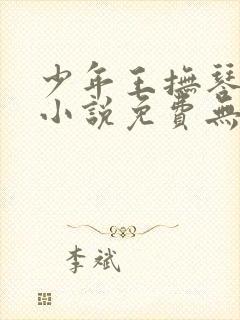 少年王撫琴
小説免費無
李斌